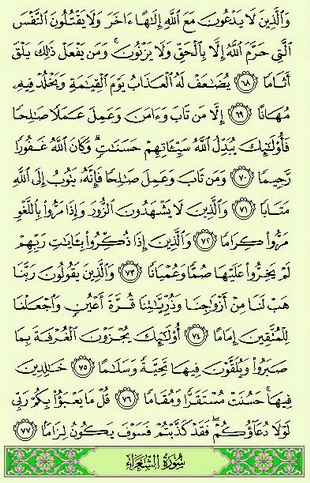 وَٱلَّذِينَ لَا يَدْعُونَ مَعَ ٱللَّهِ إِلَٰهًا ءَاخَرَ وَلَا يَقْتُلُونَ ٱلنَّفْسَ
ٱلَّتِي حَرَّمَ ٱللَّهُ إِلَّا بِٱلْحَقِّ وَلَا يَزْنُونَ ۚ وَمَن يَفْعَلْ ذَٰلِكَ يَلْقَ
أَثَامًا ٦٨ يُضَٰعَفْ لَهُ ٱلْعَذَابُ يَوْمَ ٱلْقِيَٰمَةِ وَيَخْلُدْ فِيهِۦ
مُهَانًا ٦٩ إِلَّا مَن تَابَ وَءَامَنَ وَعَمِلَ عَمَلًا صَٰلِحًا
فَأُو۟لَٰٓئِكَ يُبَدِّلُ ٱللَّهُ سَيِّـَٔاتِهِمْ حَسَنَٰتٍ ۗ وَكَانَ ٱللَّهُ غَفُورًا
رَّحِيمًا ٧٠ وَمَن تَابَ وَعَمِلَ صَٰلِحًا فَإِنَّهُۥ يَتُوبُ إِلَى ٱللَّهِ
مَتَابًا ٧١ وَٱلَّذِينَ لَا يَشْهَدُونَ ٱلزُّورَ وَإِذَا مَرُّوا۟ بِٱللَّغْوِ
مَرُّوا۟ كِرَامًا ٧٢ وَٱلَّذِينَ إِذَا ذُكِّرُوا۟ بِـَٔايَٰتِ رَبِّهِمْ
لَمْ يَخِرُّوا۟ عَلَيْهَا صُمًّا وَعُمْيَانًا ٧٣ وَٱلَّذِينَ يَقُولُونَ رَبَّنَا
هَبْ لَنَا مِنْ أَزْوَٰجِنَا وَذُرِّيَّٰتِنَا قُرَّةَ أَعْيُنٍ وَٱجْعَلْنَا
لِلْمُتَّقِينَ إِمَامًا ٧٤ أُو۟لَٰٓئِكَ يُجْزَوْنَ ٱلْغُرْفَةَ بِمَا
صَبَرُوا۟ وَيُلَقَّوْنَ فِيهَا تَحِيَّةً وَسَلَٰمًا ٧٥ خَٰلِدِينَ
فِيهَا ۚ حَسُنَتْ مُسْتَقَرًّا وَمُقَامًا ٧٦ قُلْ مَا يَعْبَؤُا۟ بِكُمْ رَبِّي
لَوْلَا دُعَآؤُكُمْ ۖ فَقَدْ كَذَّبْتُمْ فَسَوْفَ يَكُونُ لِزَامًۢا ٧٧
سُورَةُ الشُّعَرَاءِ